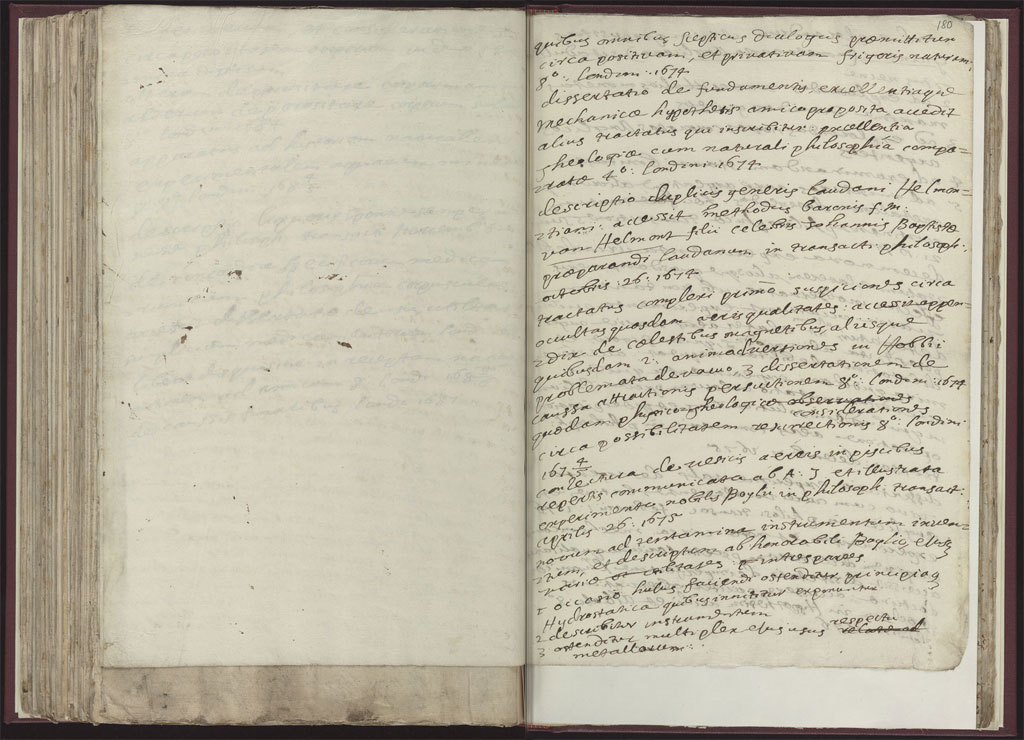 180
quibus omnibus scepticus dialogus præmittitur
circa positivam, et privativam frigoris naturam
8º: Londini: 1674
dissertatio de fundamentis excellentiaque
Mechanicæ hypothesis amico proposita accedit
alius tractatus qui inscribitur excellentia
Theologiæ cum naturali philosophiâ compa=
ratæ 4º: Londini: 1674
descriptio duplicis generis laudani Helmon-
tiani: accessit methodus Baronis f: m:
van Helmont filii celebris Johannis Baptistæ
præparandi laudanum in transact: philosoph:
octobris: 26: 1674
tractatus complexi primo suspiciones circa
occultas quasdam aeris qualitates: accessit appen=
dix de cœlestibus magnetibus, aliisque
quibusdam 2: animadversiones in Hobbii
problemata de vacuo, 3 dissertationem de
caussa attractionis per suctionem 8º: Londini: 1674
quædam physico=theologicæ observationes
considerationes
circa possibilitatem resurrectionis 8º: Londini
167 4/5
conjectura de vesicis aereis in piscibus
repertis communicata ab A: J et illustrata
experimento nobilis Boylii in philosoph: transact:
aprilis 26: 1675
novum ad tentamina instrumentum inven=
tum, et descriptum ab honorabili Boylio, ejusq
variæ utilitates: in tres partes
1 occasio hujus faciendi ostenditur, principiaq
Hydrostatica quibus innititur exponuntur
2 describitur instrumentum
3 ostenditur multiplex ejus usus respectu
relate ad
metallorum: